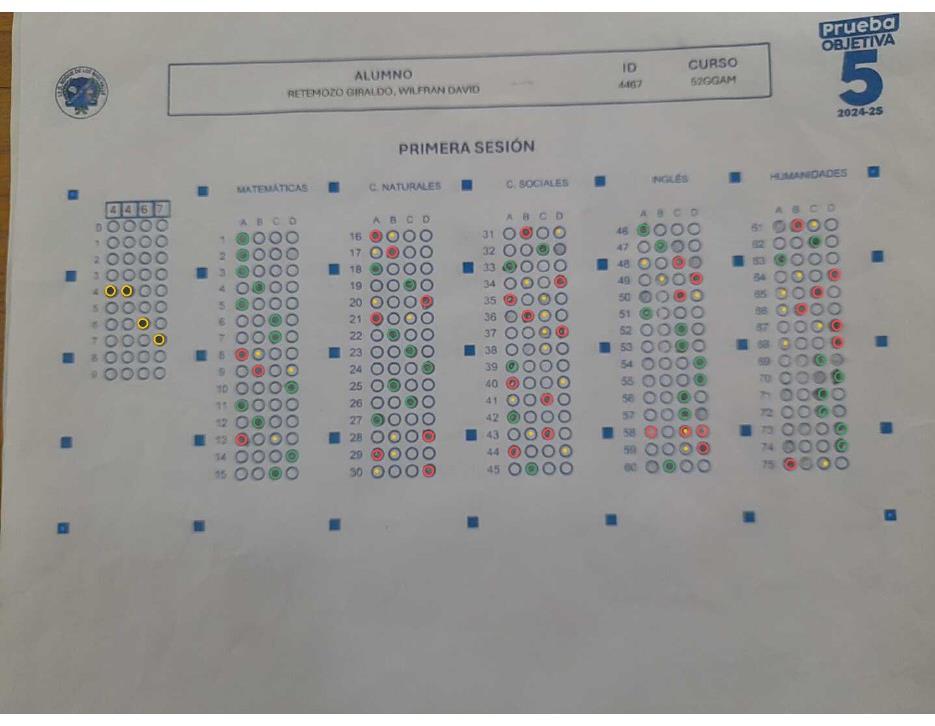 Prueba
OBJETIVA
5
2024-25
ALUMNO
RETEMOZO GIRALDO, WILFRAN DAVID
ID
4467
CURSO
52GGAM
PRIMERA SESIÓN
4 4 6 7
0
1
2
3
4
5
6
7
8
9
MATEMÁTICAS
A B C D
1
2
3
4
5
6
7
8
9
10
11
12
13
14
15
C. NATURALES
A B C D
16
17
18
19
20
21
22
23
24
25
26
27
28
29
30
C. SOCIALES
A B C D
31
32
33
34
35
36
37
38
39
40
41
42
43
44
45
INGLÉS
A B C D
46
47
48
49
50
51
52
53
54
55
56
57
58
59
60
HUMANIDADES
A B C D
61
62
63
64
65
66
67
68
69
70
71
72
73
74
75